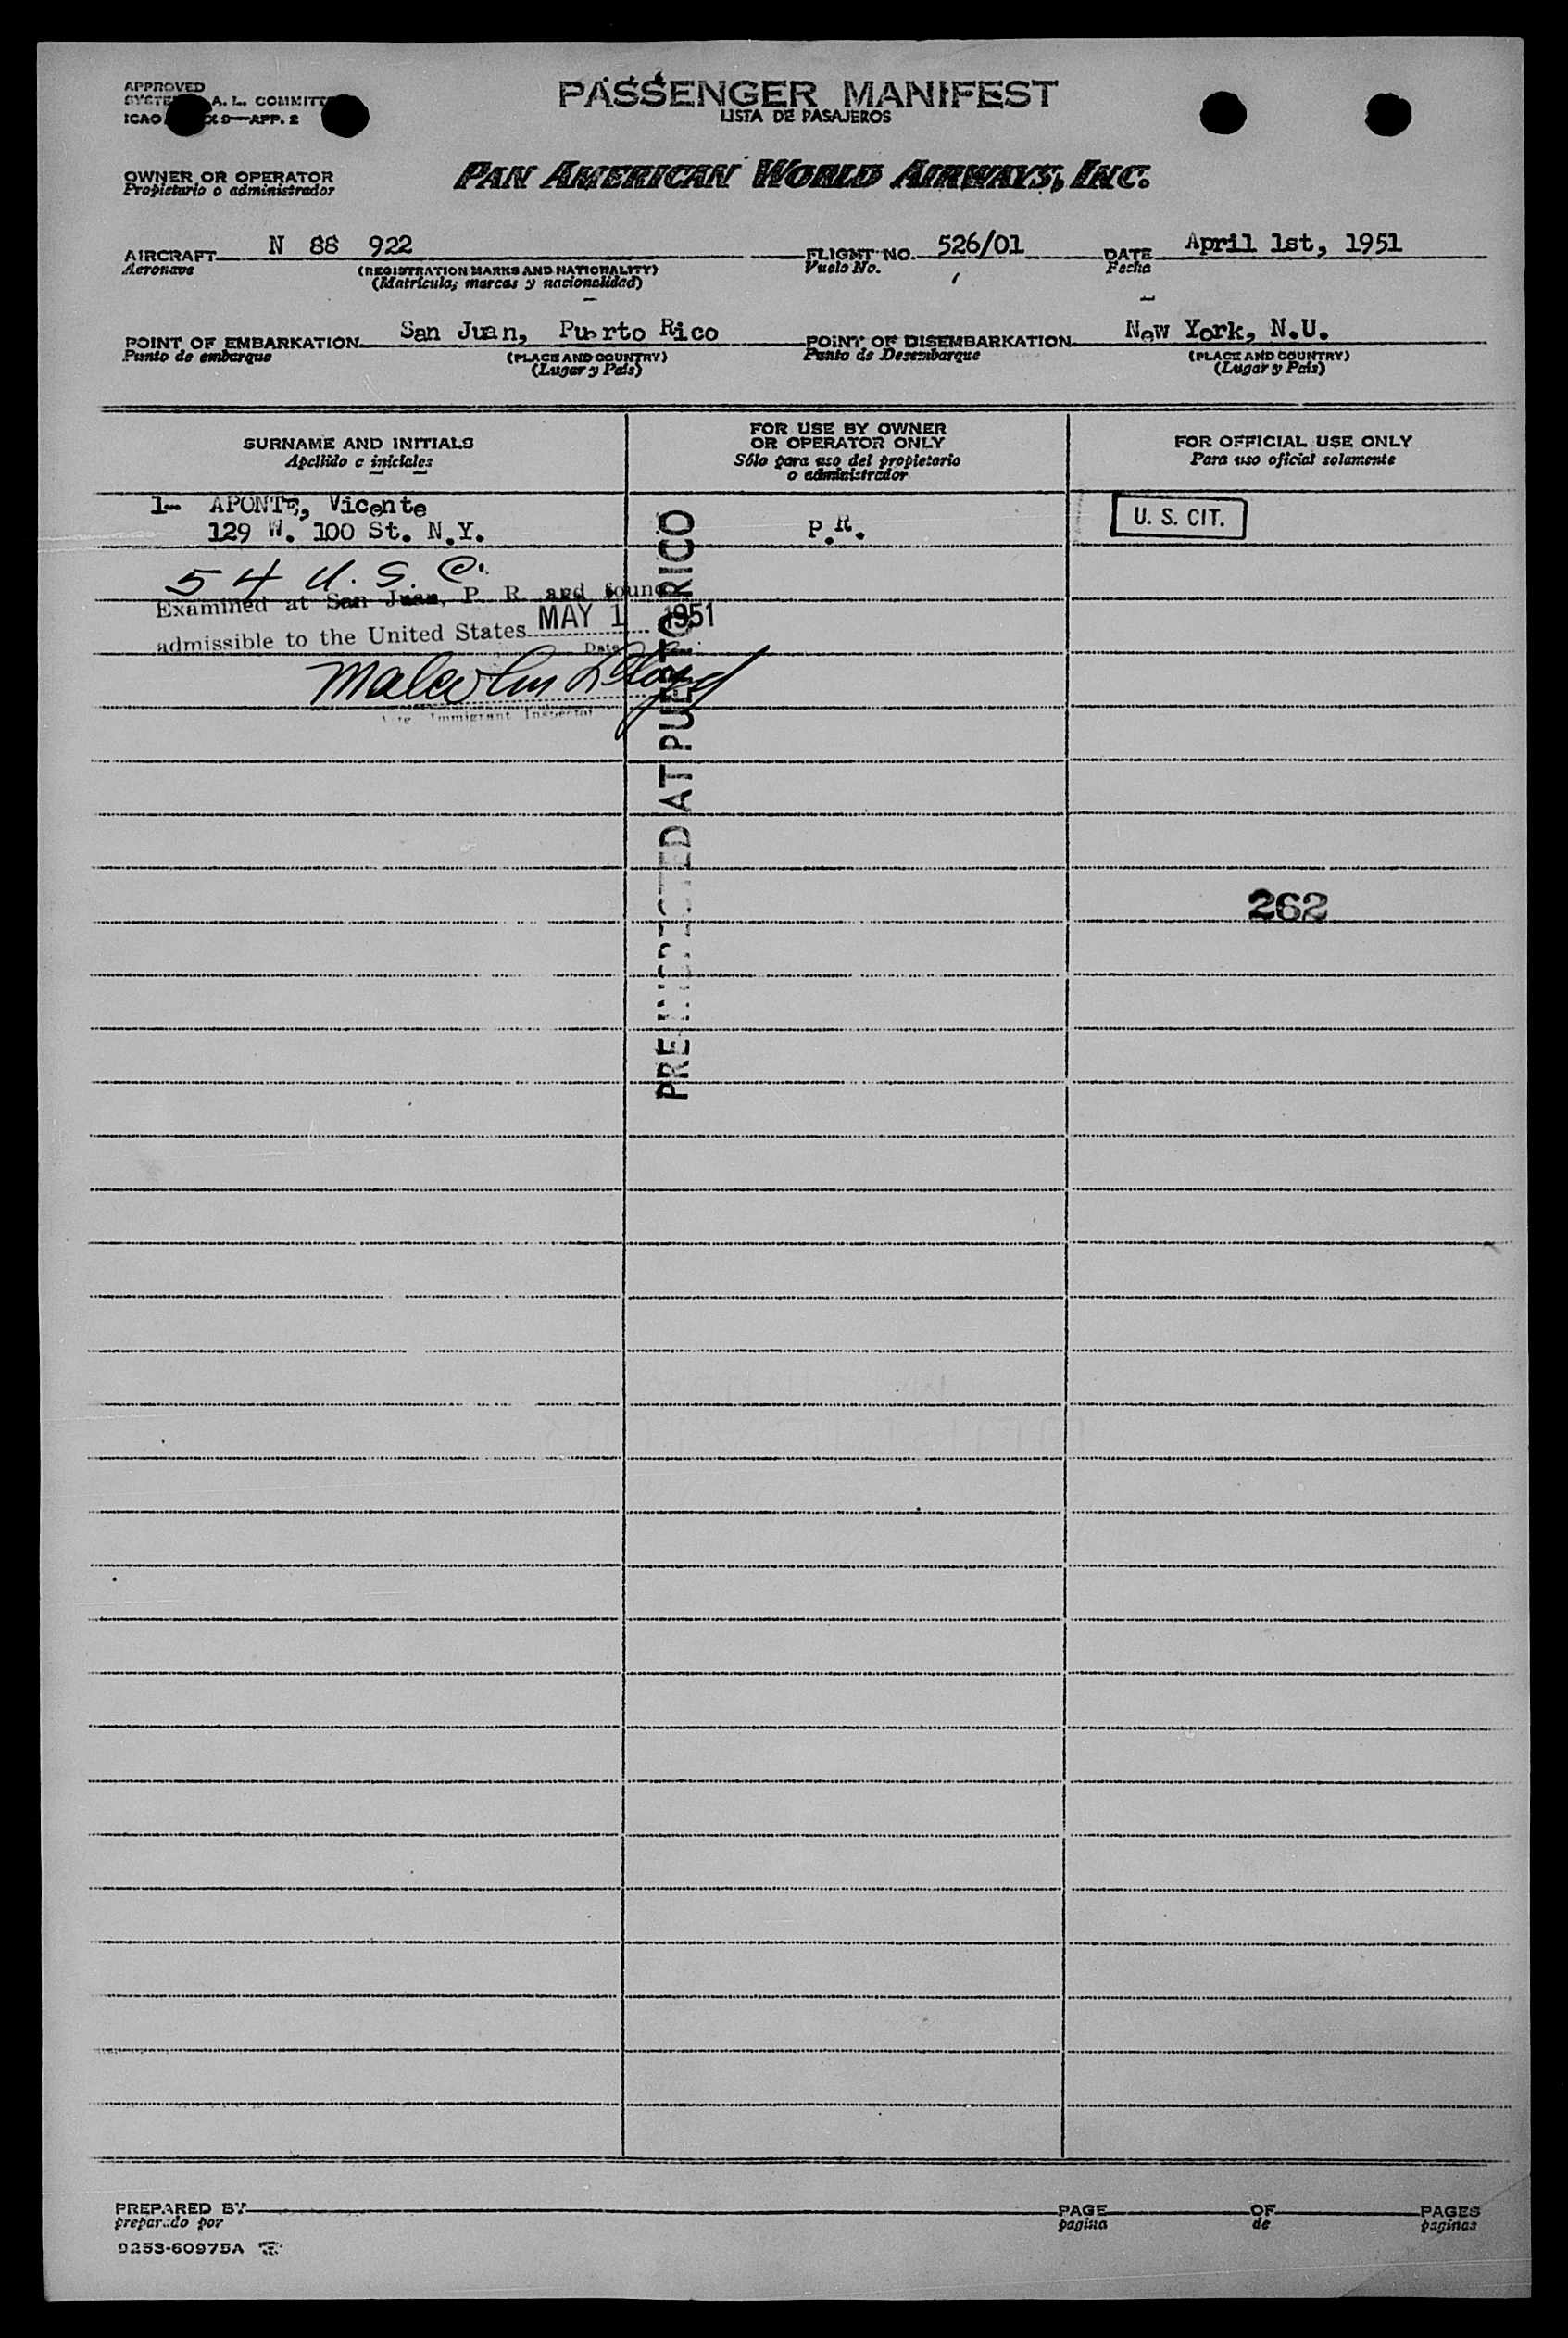 APPROVED
A. L. COMMITT
ICAO 9—APP. 2
PASSENGER MANIFEST
LISTA DE PASAJEROS
OWNER OR OPERATOR
Propietario o administrador
PAN AMERICAN WORLD AIRWAYS, INC.
AIRCRAFT N 88 922 FLIGHT NO. 526/01 DATE April 1st, 1951
Aeronave (REGISTRATION MARKS AND NATIONALITY) Vuelo No. Fecha
(Matrícula; marcas y nacionalidad)
POINT OF EMBARKATION San Juan, Puerto Rico POINT OF DISEMBARKATION New York, N.U.
Punto de embarque (PLACE AND COUNTRY) Punto de Desembarque (PLACE AND COUNTRY)
(Lugar y País) (Lugar y País)
SURNAME AND INITIALS
Apellido e iniciales
FOR USE BY OWNER
OR OPERATOR ONLY
Sólo para uso del propietario
o administrador
FOR OFFICIAL USE ONLY
Para uso oficial solamente
1- APONTE, Vicente
129 W. 100 St. N.Y.
P.R.
U. S. CIT.
54 U.S.C.
Examined at San Juan, P. R. and found
admissible to the United States MAY 1 1951
Date
Malcolm
Immigrant Inspector
PRE-INSPECTED AT PUERTO RICO
262
PREPARED BY PAGE OF PAGES
preparado por pagina de paginas
9253-60975A